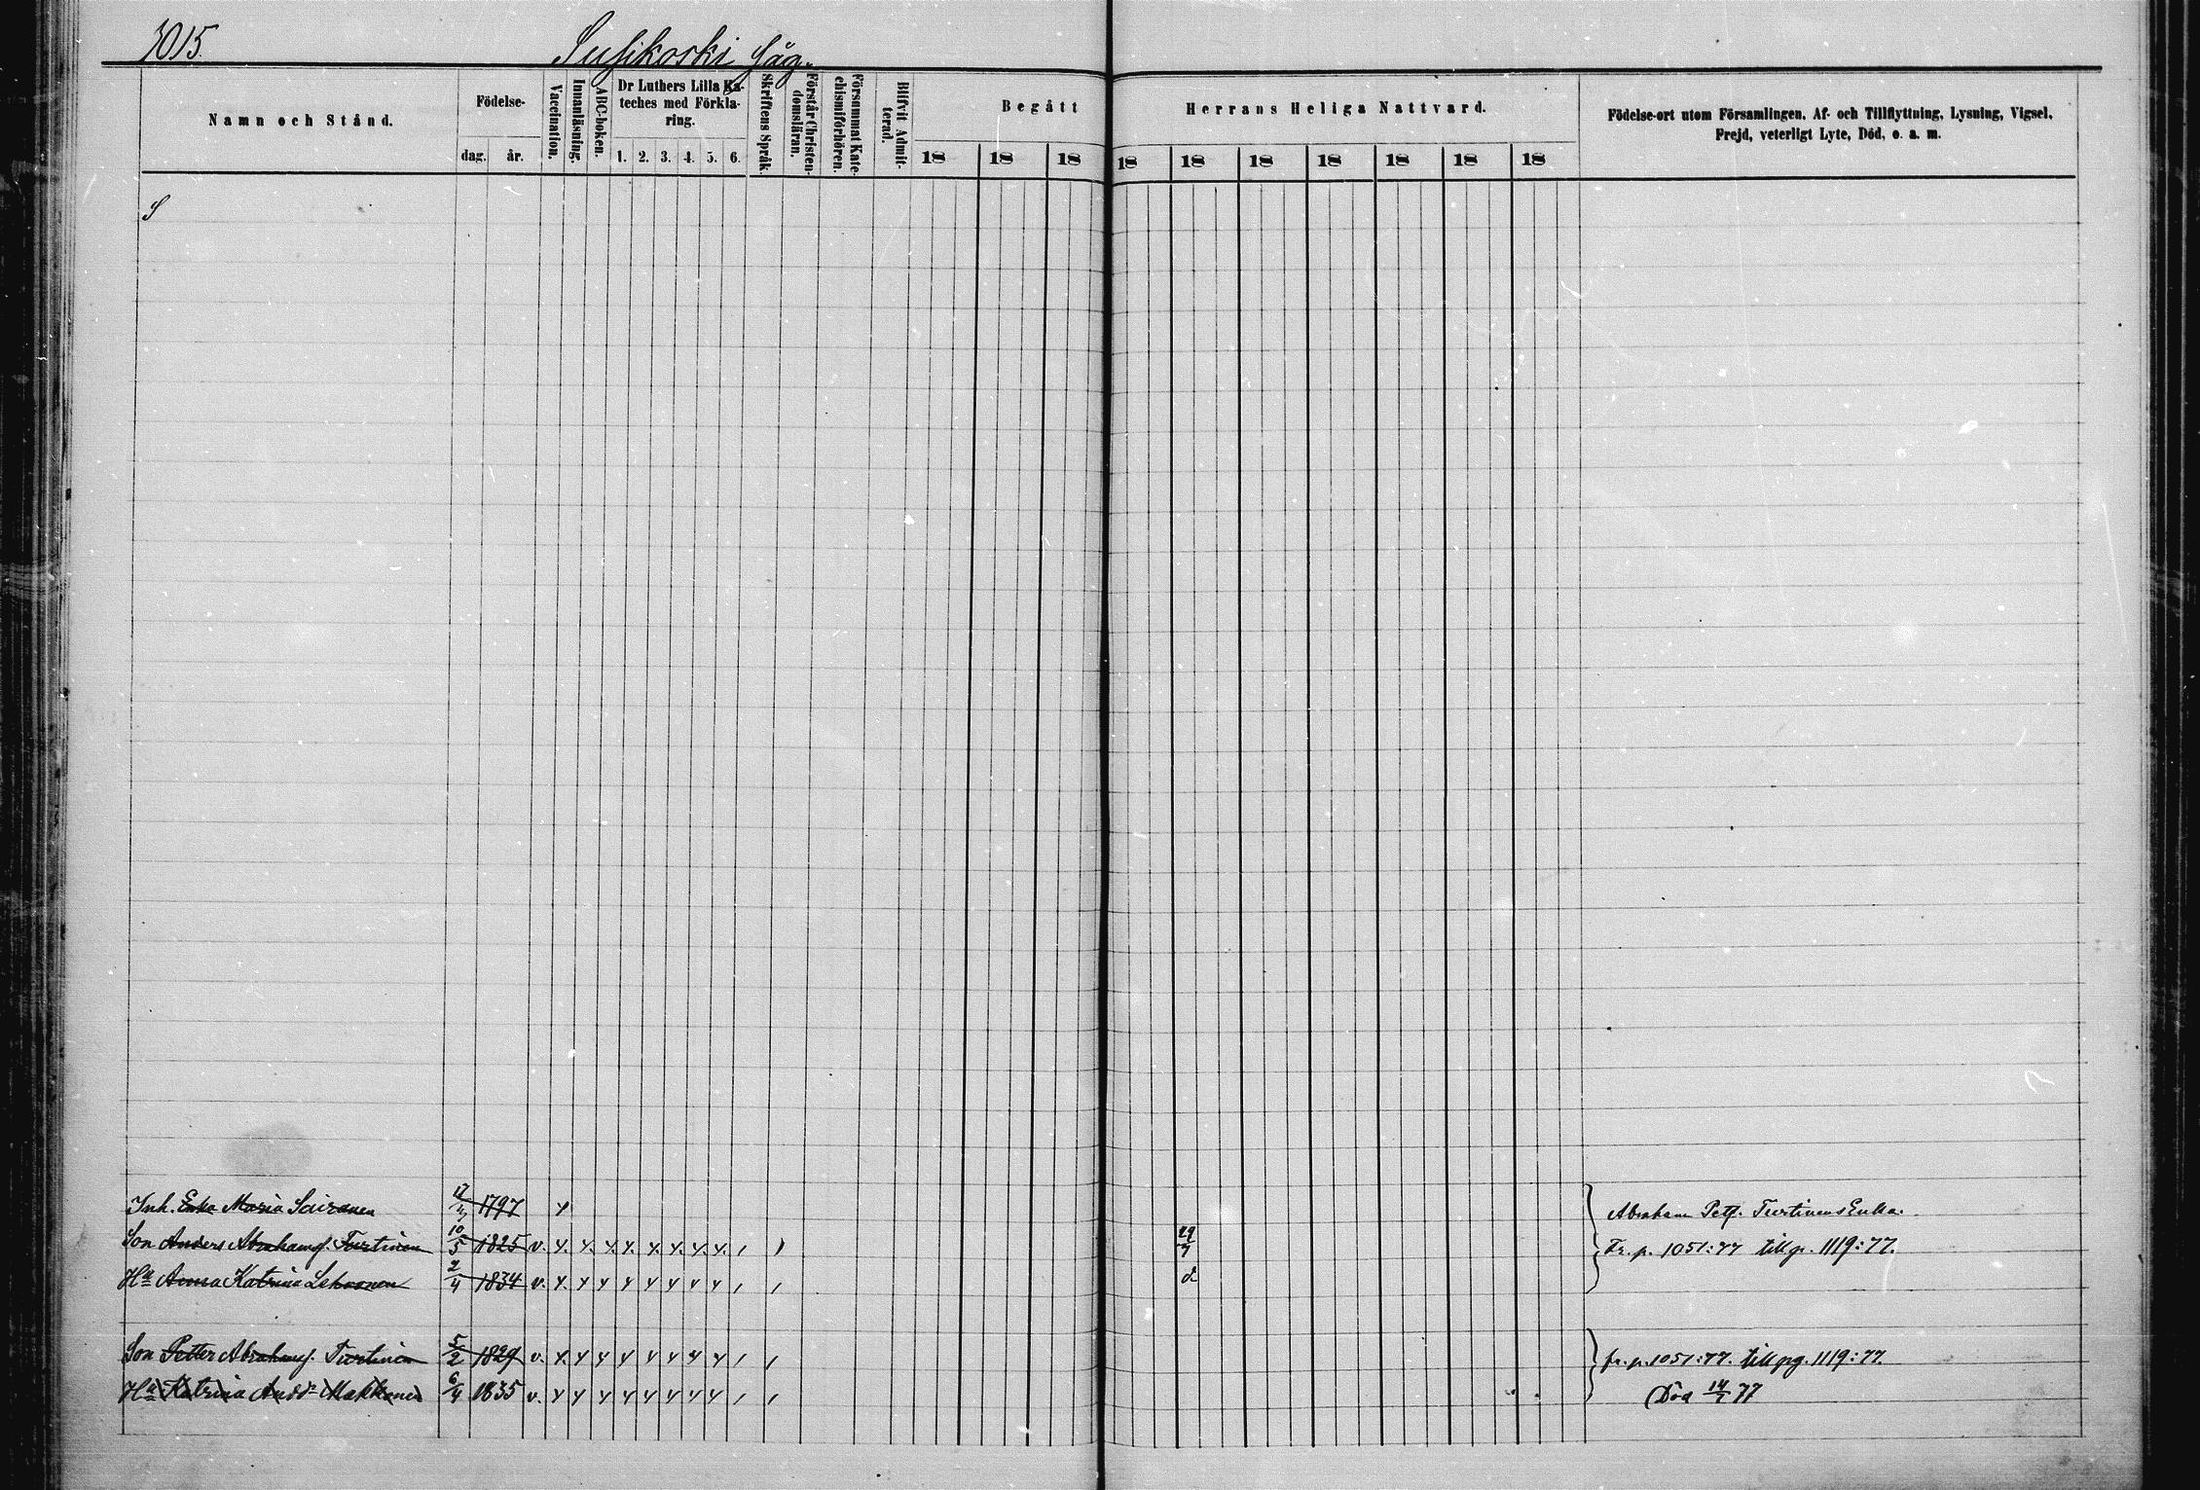 1015.
Susikoski Såg.
Namn och Stånd.
Födelse-
dag. år.
Vaccination.
Innanläsning.
ABC-boken.
Dr Luthers Lilla Ka-
teches med Förkla-
ring.
1. 2. 3. 4. 5. 6.
Skriftens Språk.
Förstår Christen-
domsläran.
Försummat Kate-
chismiförhören.
Blifvit Admit-
terad.
Begått Herrans Heliga Nattvard.
18 18 18 18 18 18 18 18 18 18
Födelse-ort utom Församlingen, Af- och Tillflyttning, Lysning, Vigsel,
Frejd, veterligt Lyte, Död, o. a. m.
S
Inh. Enka Maria Sairanen 17/4 1797 Abraham Petf. Turtinens Enka.
Son Anders Abrahamsf. Turtinen 10/5 1825 v. 29/7 Fr. p. 1051:77 till p. 1119:77.
Hu Anna Katrina Lehvonen 2/4 1834 v. d
Son Petter Abrahamsf. Turtinen 5/2 1829 v. fr. p. 1051:77. till pg. 1119:77.
Hu Katrina Andd. Makkonen 6/4 1835 v. Död 14/1 77